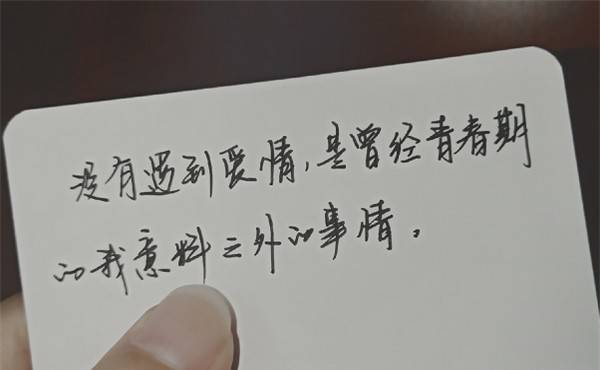 没有遇到爱情,是曾经青春期
的我意料之外的事情。